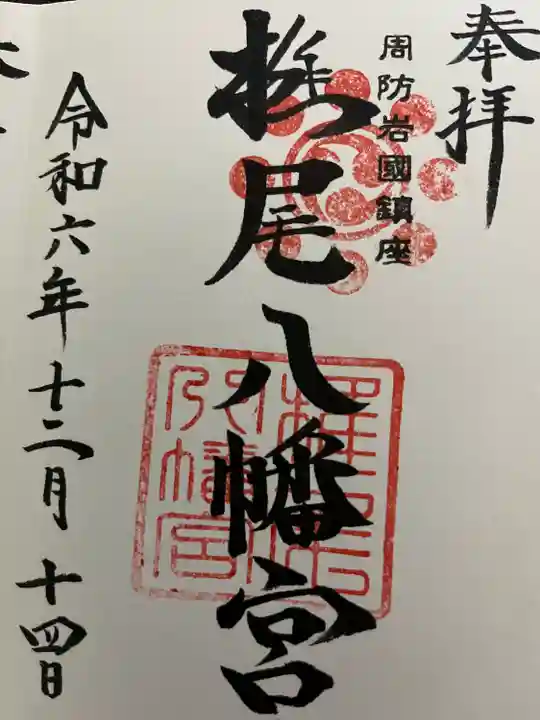 奉拝
周防岩國鎮座
椎尾八幡宮
椎尾
八幡宮
令和六年十二月十四日